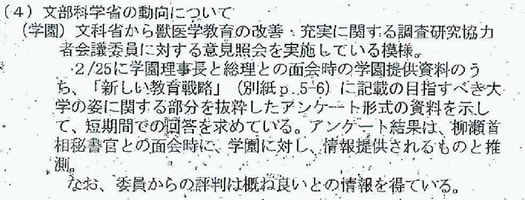 (4) 文部科学省の動向について
(学園) 文科省から獣医学教育の改善・充実に関する調査研究協力
者会議委員に対する意見照会を実施している模様。
2/25に学園理事長と総理との面会時の学園提供資料のう
ち、「新しい教育戦略」(別紙p.5-6)に記載の目指すべき大
学の姿に関する部分を抜粋したアンケート形式の資料を示し
て、短期間での回答を求めている。アンケート結果は、柳瀬首
相秘書官との面会時に、学園に対し、情報提供されるものと推
測。
なお、委員からの評判は概ね良いとの情報を得ている。